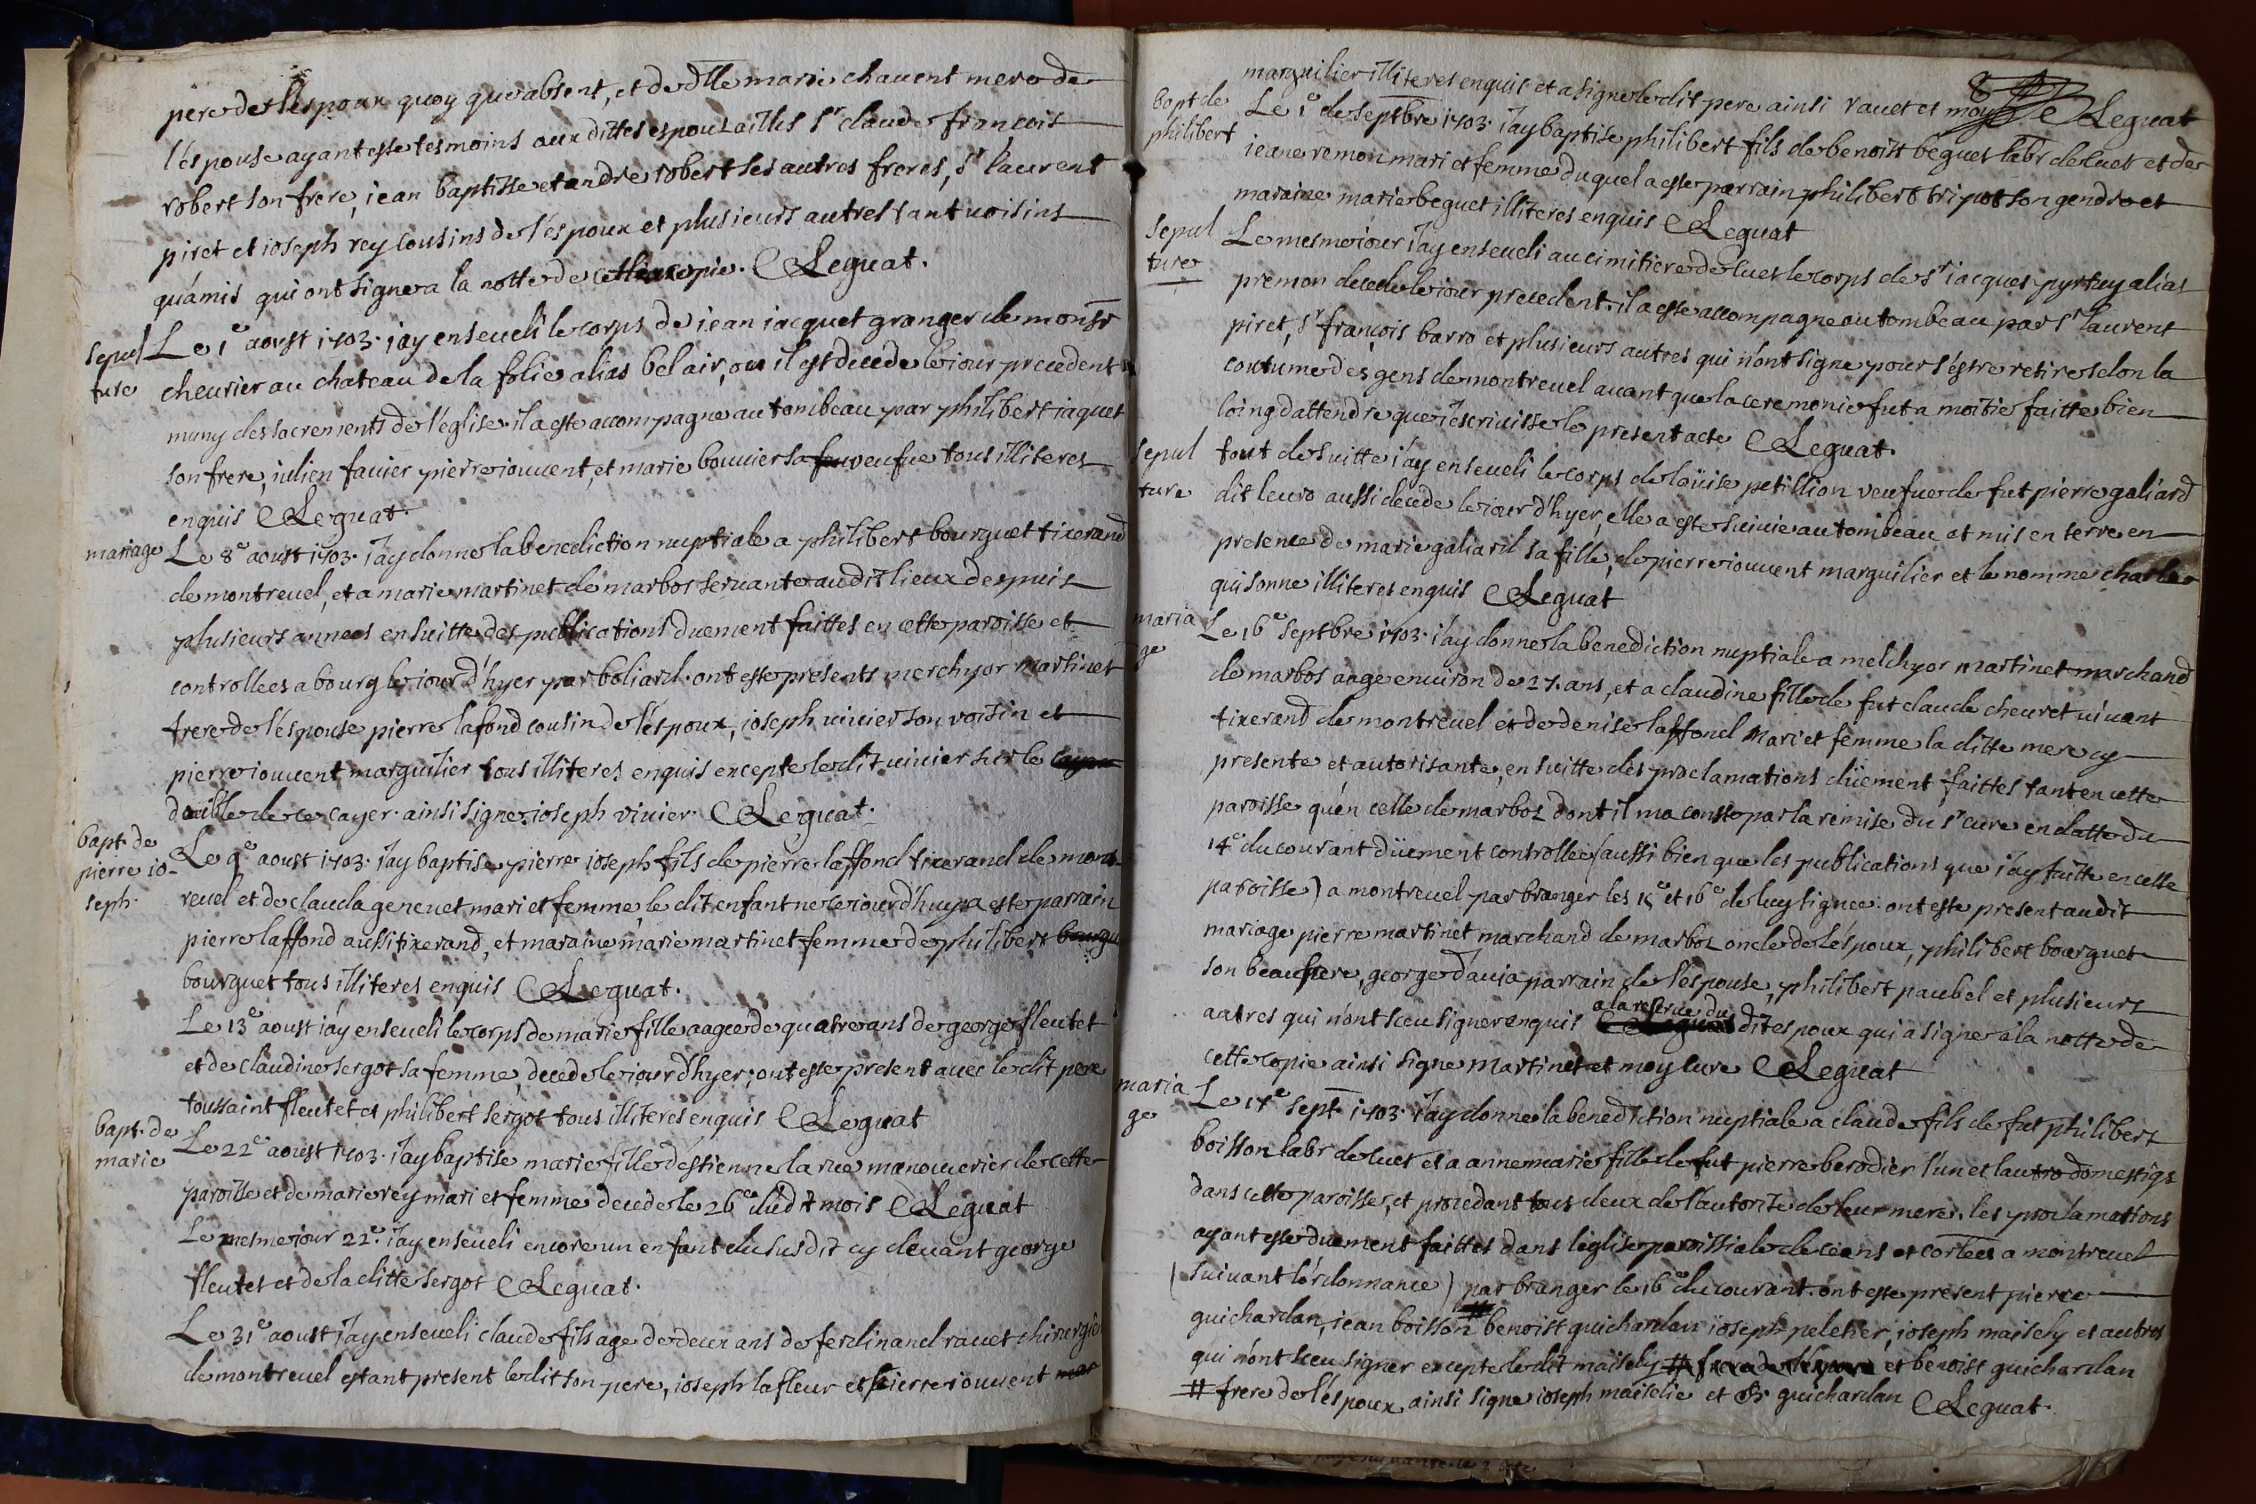 pere de l'espoux quoy que absent, et de dlle marie chauent mere de
l'espouse ayant esté tesmoins aux dittes espousailles sr claude francois
robert son frere, jean baptiste et andre robert ses autres freres, sr laurent
piret et joseph rey cousins de l'espoux et plusieurs autres tant voisins
qu'amis qui ont signe a la notte de cette copie. Leguat.
sepul
ture
Le 1e aoust 1703. j'ay enseueli le corps de jean jacquet granger de monsr
cheurier au chateau de la folie alias bel air, ou il est decede le jour precedent
muny des sacrements de l'église. il a esté accompagne au tombeau par philibert jaquet
son frere, julien fauier pierre jouuent, et marie bouuier sa veufue tous illiteres
enquis Leguat.
mariage
Le 8e aoust 1703. J'ay donne la benediction nuptiale a philibert bourguet tixerand
de montreuel, et a marie martinet de marbos seruante audit lieux despuis
plusieurs annees ensuitte des publications duement faittes en cette paroisse et
controllees a bourg le jour d'hyer par boliard. ont esté presents merchyor martinet
frere de l'espouse pierre lafond cousin de l'espoux, joseph viuier son voisin et
pierre jouuent marguilier tous illiteres enquis excepte ledit viuier sur le
double de ce cayer. ainsi signe. joseph viuier. Leguat.
bapt. de
pierre jo-
seph.
Le 9e aoust 1703. J'ay baptise pierre joseph fils de pierre laffond tixerand de mont-
reuel et de clauda geneuet mari et femme, le dit enfant ne le jour d'huy a este parrain
pierre laffond aussi tixerand, et maraine marie martinet femme de philibert bourgu
bourguet tous illiteres enquis Leguat.
Le 13e aoust j'ay enseueli le corps de marie fille aagee de quatre ans de george fleutet
et de claudine sergot sa femme, decede le jour d'hyer; ont esté present auec le dit pere
toussaint fleutet et philibert sergot tous illiteres enquis Leguat
bapt. de
marie
Le 22e aoust 1703. J'ay baptise marie fille d'estienne la rue manouurier de cette
paroisse et de marie rey mari et femme decede le 26e dudit mois Leguat
Le mesme jour 22e. J'ay enseueli encore un enfant du susdit cy deuant george
fleutet et de la ditte sergot Leguat.
Le 31e aoust J'ay enseueli claude fils age de deux ans de ferdinand rauet chirurgie
de montreuel estant present ledit son pere, joseph lafleur et pierre jouuent mar
marguilier illiteres enquis et a signe le dit pere ainsi rauet et moy Leguat
bapt de
philibert
Le 1e de septbre 1703. J'ay baptise philibert fils de benoist beguet labr de luet et de
jeane remon mari et femme duquel a este parrain philibert tripot son gendre et
maraine marie beguet illiteres enquis Leguat
sepul
ture
Le mesme jour J'ay enseueli au cimitiere de luet le corps de sr jacques pyrtuy alias
premon decede le jour precedent. il a esté accompagne au tombeau par sr laurent
piret, sr françois barro et plusieurs autres qui n'ont signe pour s'estre retire selon la
coutume des gens de montreuel auant que la ceremonie fut a moitie faitte bien
loing d'attendre que j'escriuisse le present acte Leguat.
sepul
ture
tout de suitte j'ay enseueli le corps de loüise petillion veufue de fut pierre galiard
dit leuro aussi decede le jour d'hyer, elle a este suiuie au tombeau et mis en terre en
presence de marie galiard sa fille, de pierre jouuent marguilier et le nomme charle
qui sonne illiteres enquis Leguat
maria
ge
Le 16e septbre 1703. j'ay donne la benediction nuptiale a melchyor martinet marchand
de marbos aage enuiron de 27. ans, et a claudine fille de fut claude cheuret viuant
tixerand de montreuel et de denise laffond mari et femme la ditte mere cy
presente et autorisante, ensuitte des proclamations düement faittes tant en cette
paroisse qu'en celle de marbos dont il ma conste par la remise du sr curé en datte du
14e du courant düement controllee (aussi bien que les publications que j'ay faitte en cette
paroisse) a montreuel par branger les 15e et 16e de luy signee. ont esté present audit
mariage pierre martinet marchand de marbos oncle de l'espoux, philibert bourguet
son beaufrere, george dauia parrain de l'espouse, philibert paubel et plusieurs
autres qui n'ont sceu signer enquis a la reserue du dit espoux qui a signe a la notte de
cette copie ainsi signe martinet et moy cure Leguat
maria
ge
Le 17e sept. 1703. J'ay donne la benediction nuptiale a claude fils de fut philibert
boisson labr de luet et a anne marie fille de fut pierre berodier l'un et l'autre domestiqs
dans cette paroisse, et procedant tous deux de l'autorité de leur mere. les proclamations
ayant esté duement faittes dans l'eglise paroissiale de ceans et corlees a montreuel
(suiuant l'ordonnance) par branger le 16e du courant. ont esté present pierre
guichardan, jean boisson # benoist guichardan joseph peletier, joseph maisely et autres
qui n'ont sceu signer excepte ledit maisely et benoist guichardan
# frere de l'espoux, ainsi signe joseph maiselie et B. guichardan Leguat.